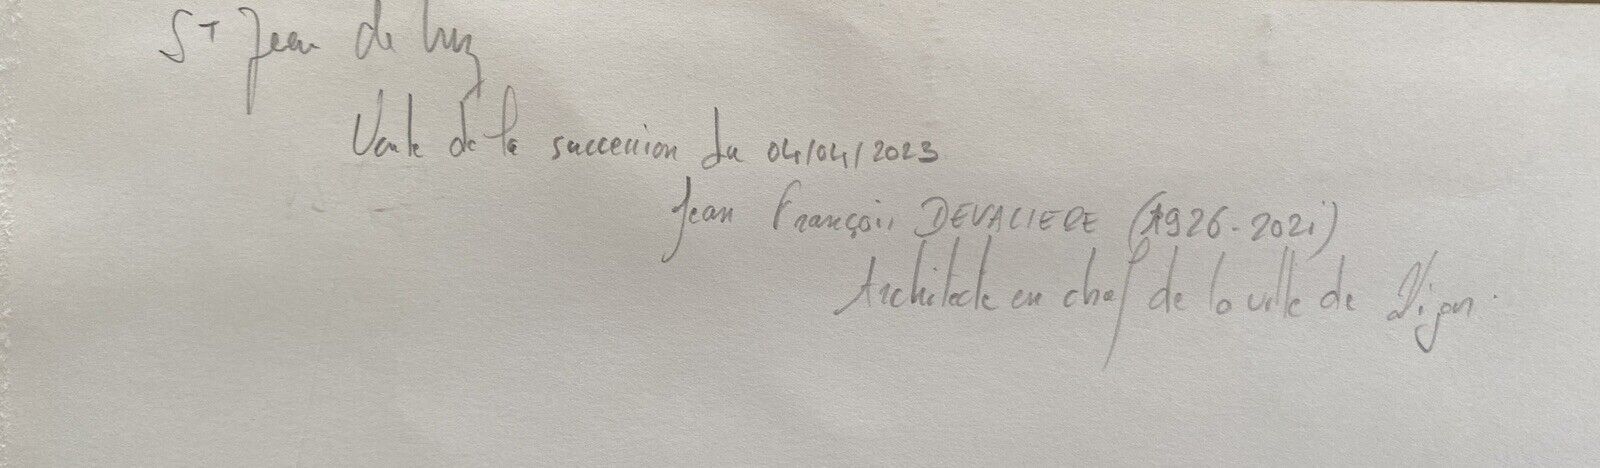 St Jean de Luz
Vente de la succession du 04/04/2023
Jean François DEVALIERE (1926-2021)
Architecte en chef de la ville de Dijon.